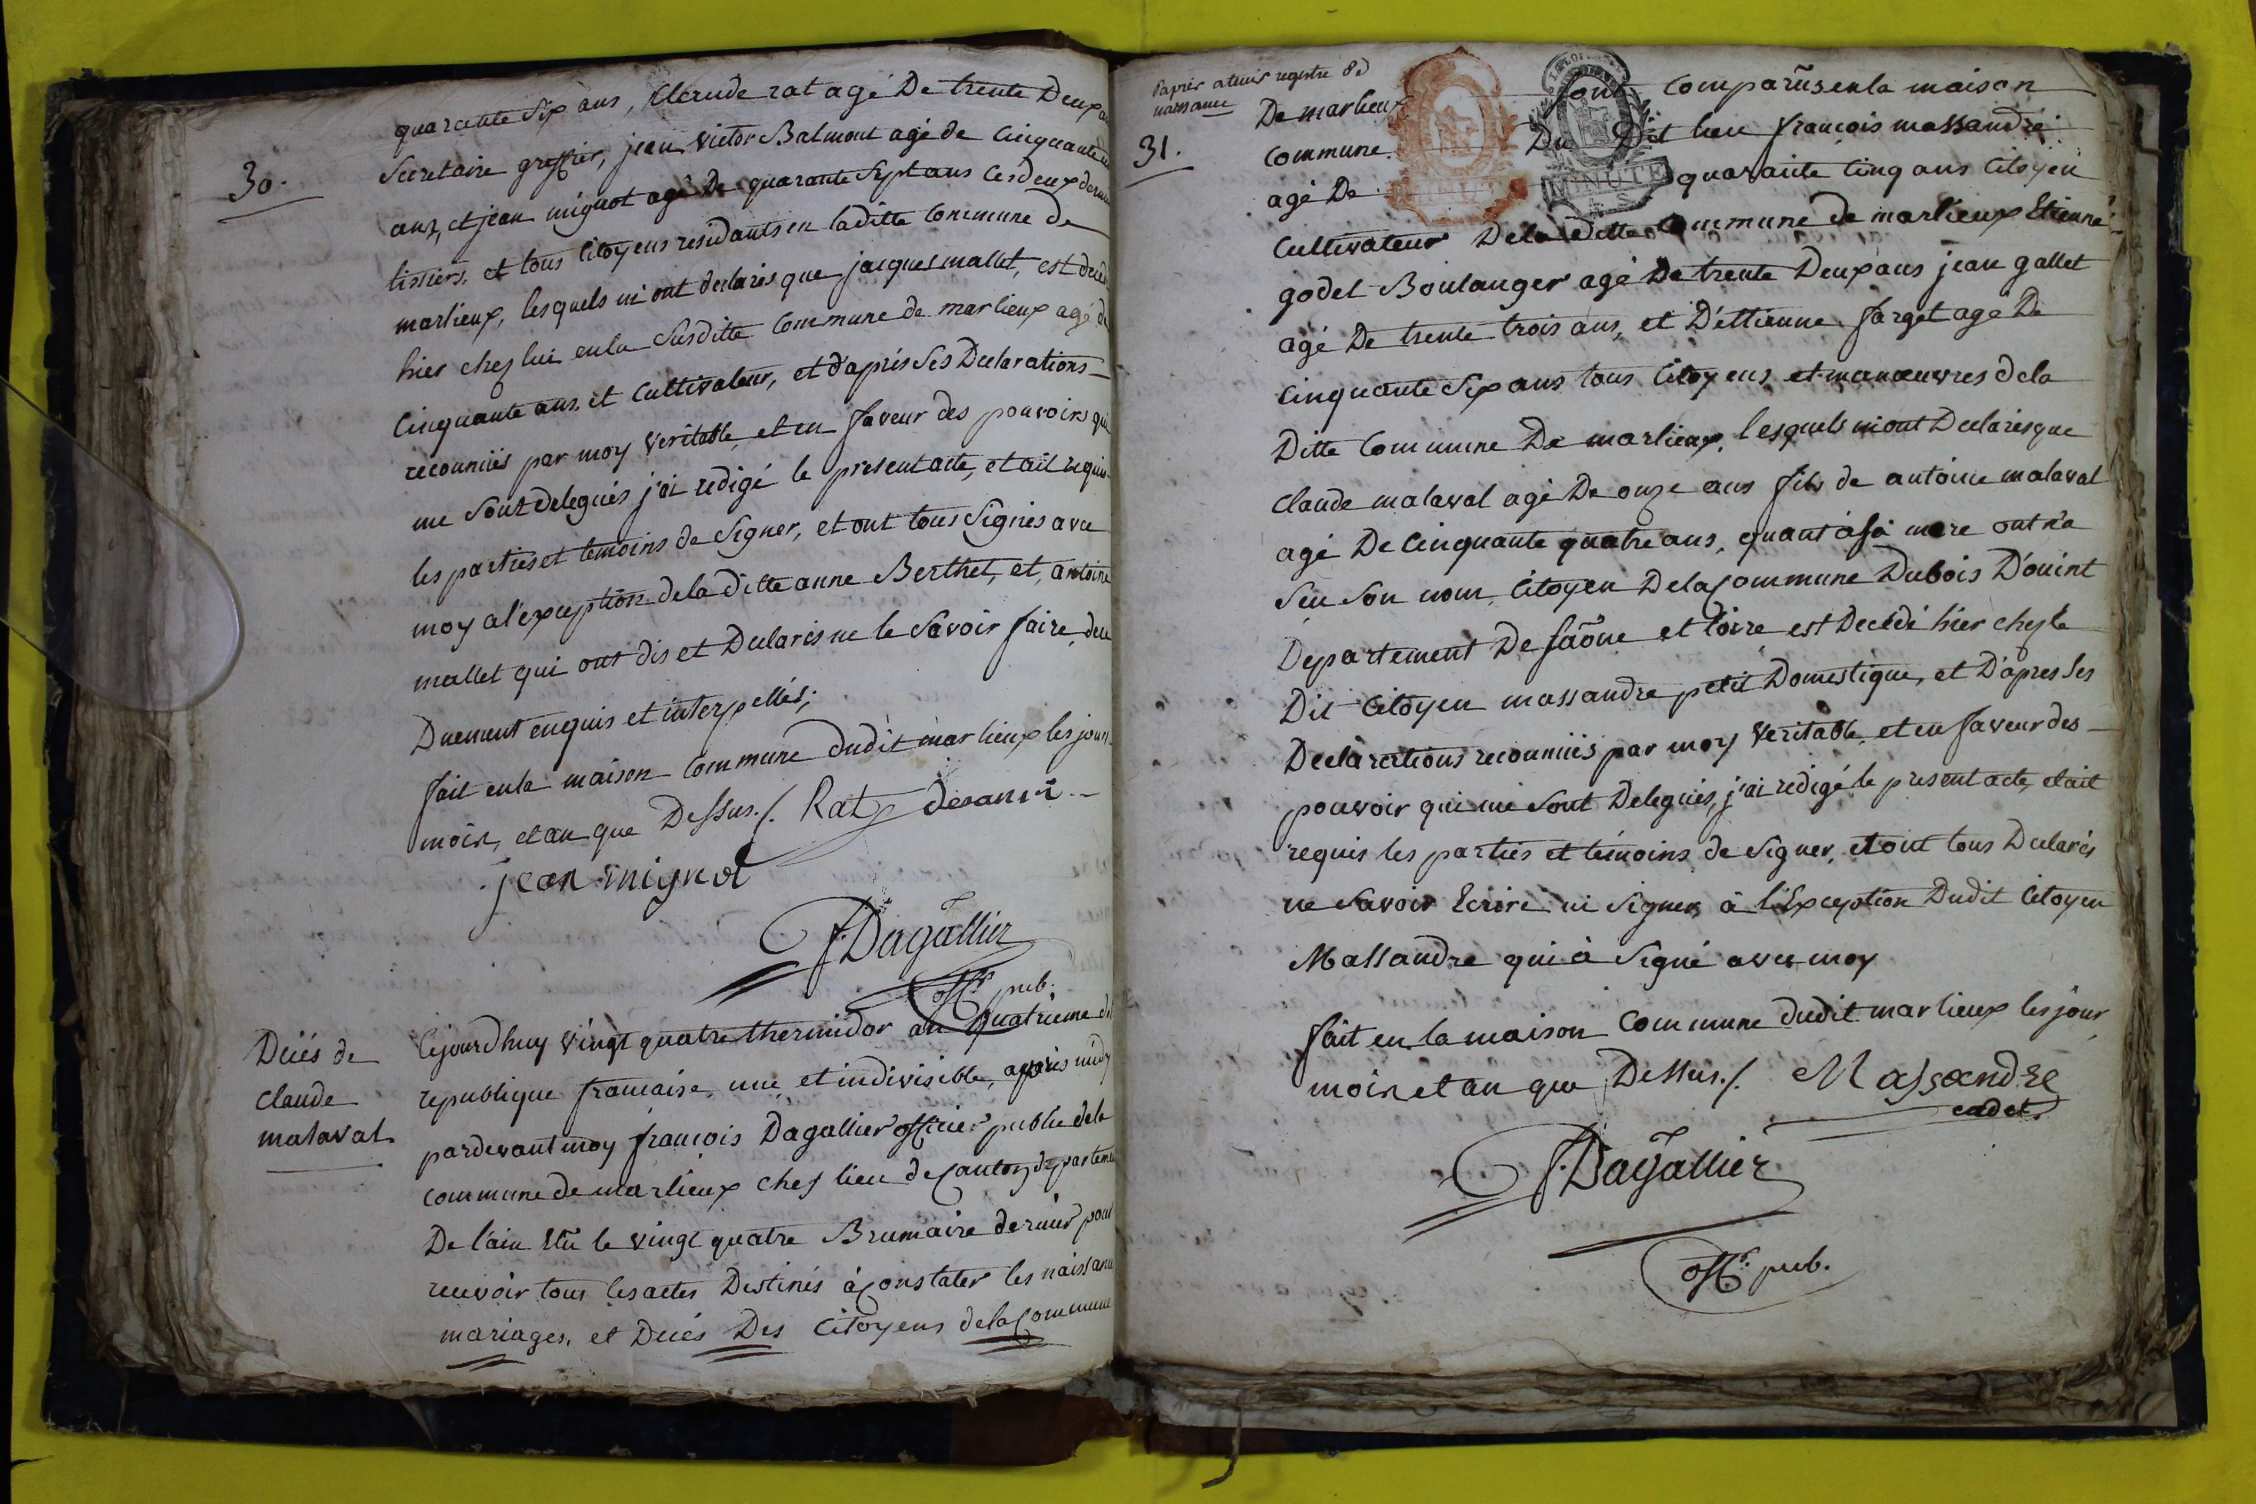 30.
quarante Six ans, Claude rat agé De trente Deux
Secretaire greffier, jean victor Balmont agé de Cinquante
ans, et jean mignot agé De quarante Sept ans Ces deux
tissiers, et tous Citoyens residants en laditte Commune de
marlieux, lesquels m'ont declarés que jacques mallet, est
hier chez lui en la Susditte Commune de marlieux agé de
Cinquante ans, et Cultivateur, et d'aprés Ses Declarations
reconnües par moy veritable, et en faveur des pouvoirs qui
me Sont delegués j'ai redigé le present acte, et ait requis
les parties et temoins de Signer, et ont tous Signés avec
moy a l'exception de la ditte anne Berthet, et, antoine
mallet qui ont dis et Declarés ne le Savoir faire, de ce
Duement enquis et interpellés;
fait en la maison Commune dudit marlieux les jours
mois, et an que Dessus ./. Rat
jean mignot
f. Dagallier
offr. pub.
Décés de
Claude
malaval
Cejourdhuy vingt quatre thermidor an Quatrieme de
republique francaise, une et indivisible, aprés midy
pardevant moy francois Dagallier officier public de la
Commune de marlieux chef lieu de Canton, departement
De l'ain Elu le vingt quatre Brumaire dernier pour
recevoir tous les actes Destinés à Constater les naissance
mariages, et Decés Des Citoyens de la Commune
Papier a tenir registre De
naissance
31.
De marlieux Sont Comparus en la maison
Commune. Du Dit lieu françois massandre
MINUTE
agé De quarante Cinq ans Citoyen
Cultivateur De la ditte Commune de marlieux Etienne
godet Boulanger agé De trente Deux ans jean gallet
agé De trente trois ans, et D'ettienne farget agé De
Cinquante Six ans tous Citoyens et manœuvres de la
Ditte Commune De marlieux, lesquels m'ont Declarés que
Claude malaval agé De onze ans fils de antoine malaval
agé De Cinquante quatre ans, quant à Sa mere ont n'a
Seu Son nom, Citoyen De la Commune Dubois D'ouint
Departement De Saône et Loire est Decedé hier chez le
Dit Citoyen massandre petit Domestique, et D'apres Ses
Declarations reconnües par moy veritable, et en faveur des
pouvoir qui me Sont Delegués, j'ai redigé le present acte, et ait
requis les parties et témoins de Signer, et ont tous Declarés
ne Savoir Ecrire ni Signer, à l'Exception Dudit Citoyen
Massandre qui à Signé avec moy
fait en la maison Commune dudit marlieux les jour,
mois et an que Dessus ./. Massandre
cadet
f. Dagallier
offr. pub.